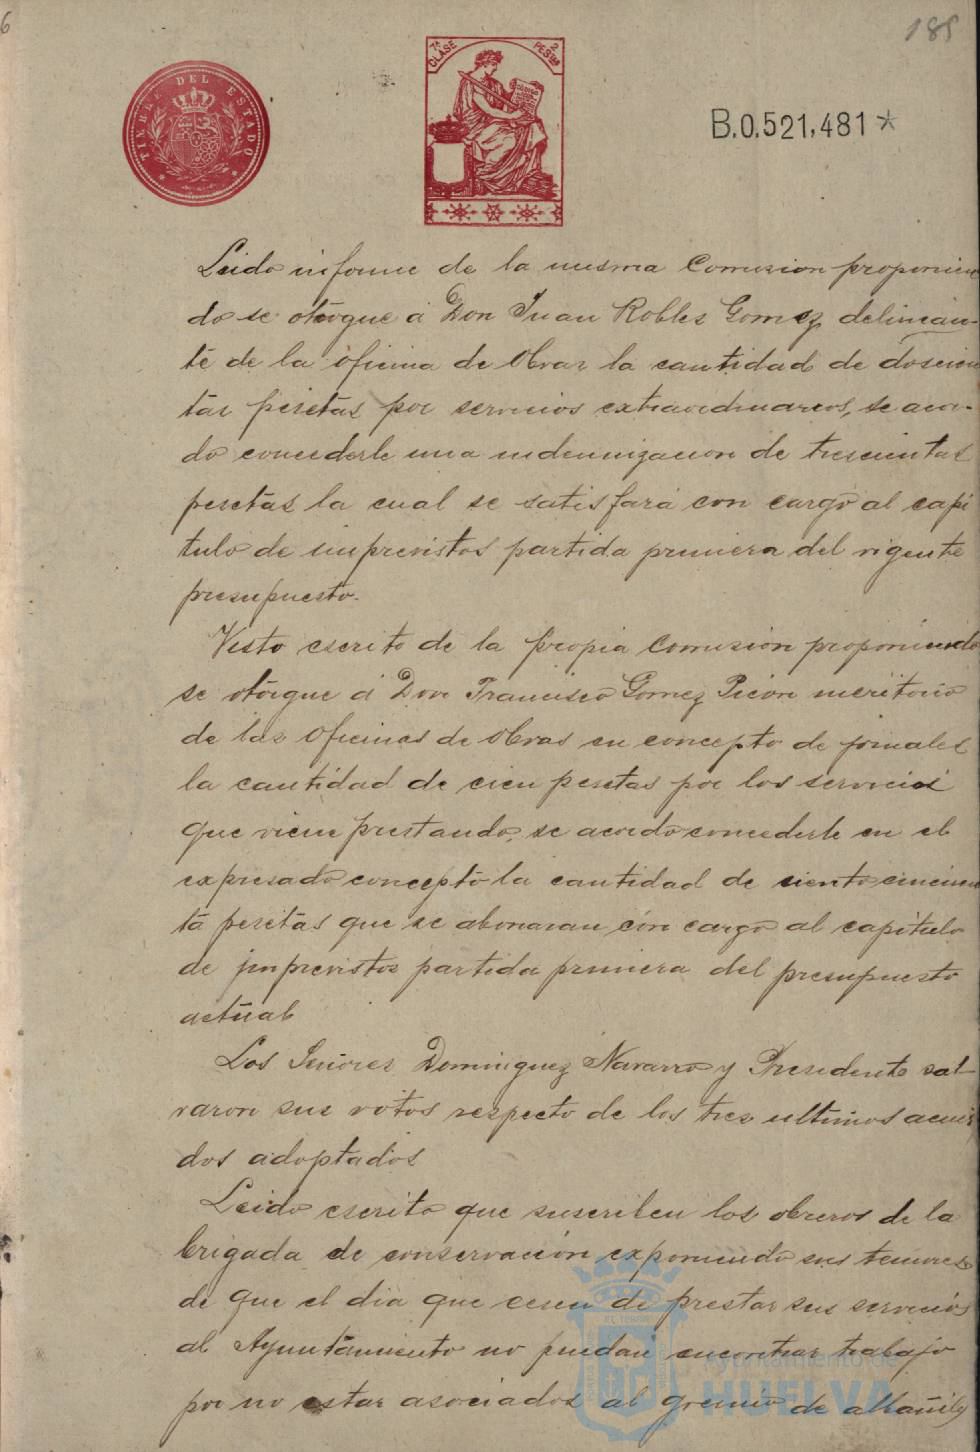 185
TIMBRE DEL ESTADO
7ª CLASE 2 PESTAS
B.0.521,481*
Leido informe de la misma Comision proponien
do se otorgue á Don Juan Robles Gomez delinean-
te de la oficina de Obras la cantidad de doscien
tas pesetas por servicios extraordinarios, se acor-
do concederle una indemnizacion de trescientas
pesetas la cual se satisfará con cargo al capi
tulo de imprevistos partida primera del vigente
presupuesto.
Visto escrito de la propia Comision proponiendo
se otorgue á Don Francisco Gomez Picon meritorio
de las Oficinas de Obras en concepto de jornales
la cantidad de cien pesetas por los servicios
que viene prestando, se acordo concederle en el
expresado concepto la cantidad de ciento cincuen
ta pesetas que se abonaran con cargo al capitulo
de imprevistos partida primera del presupuesto
actual
Los Señores Dominguez Navarro y Presidente sal-
varon sus votos respecto de los tres ultimos acuer
dos adoptados
Leido escrito que suscriben los obreros de la
brigada de conservacion exponiendo sus temores
de que el dia que cesen de prestar sus servicios
al Ayuntamiento no puedan encontrar trabajo
por no estar asociados al gremio de albañiles
Ayuntamiento de
HUELVA